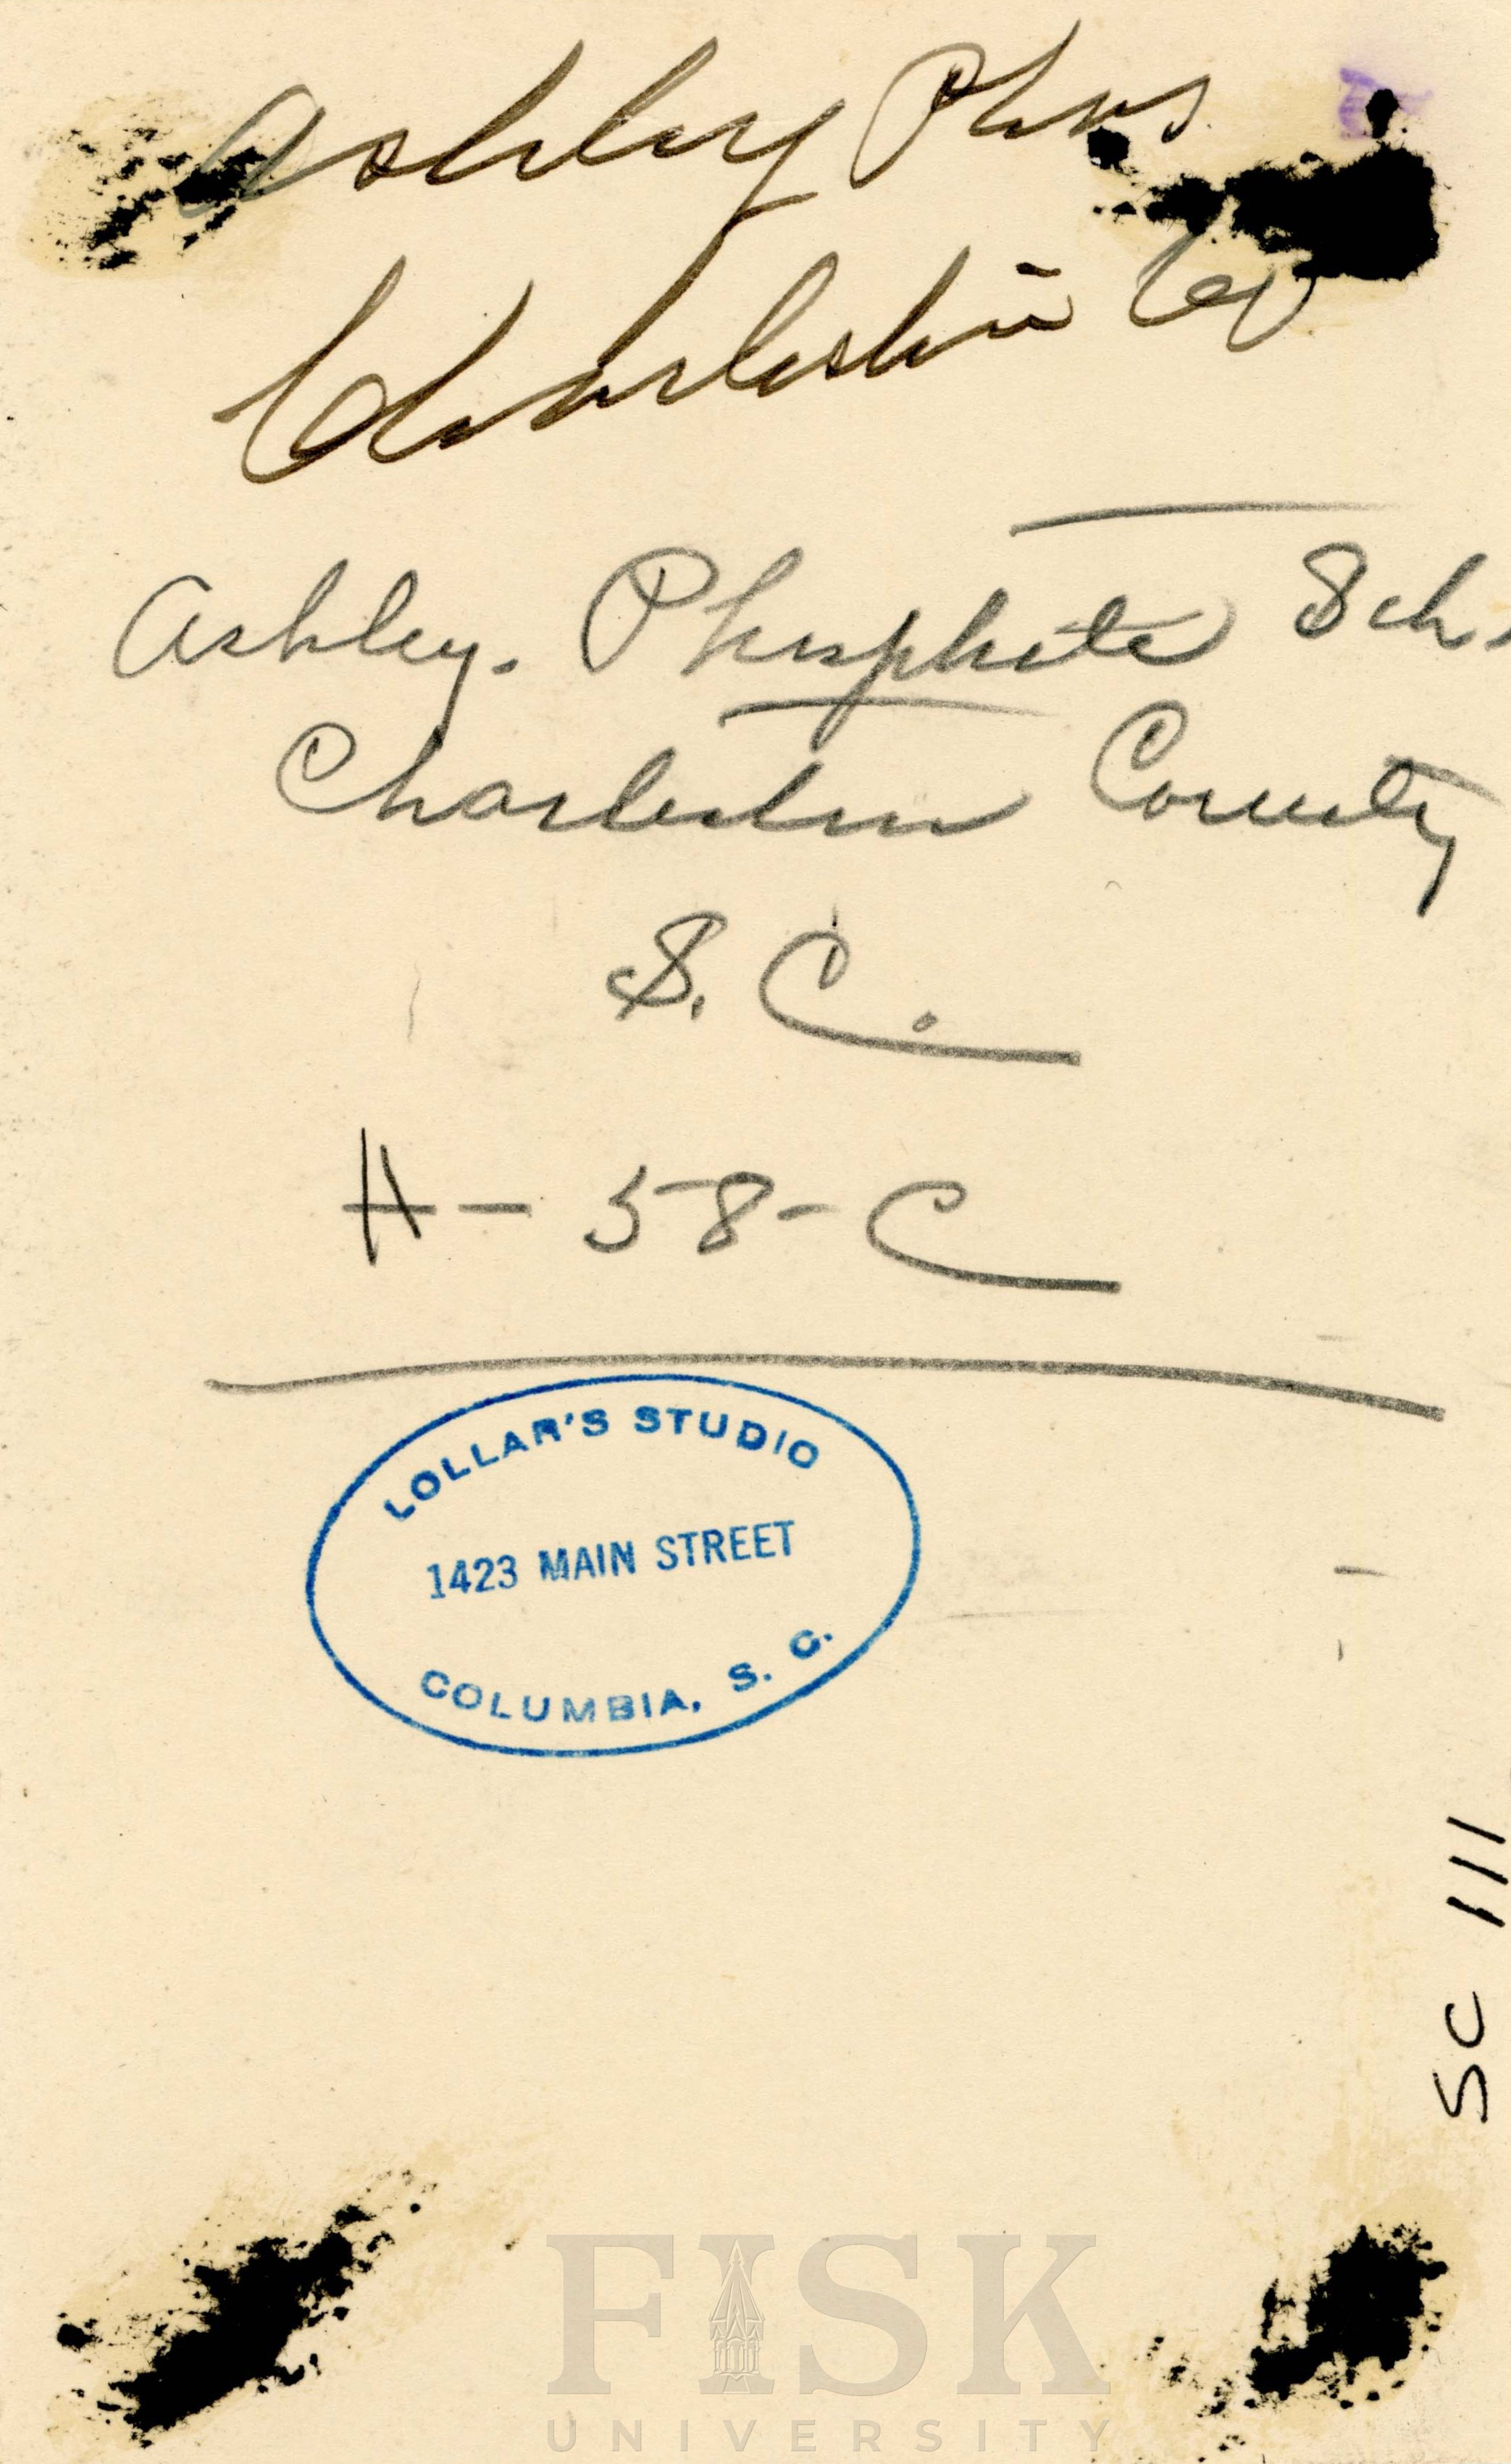 Ashley Phos
Charleston Co
Ashley. Phosphate Sch.
Charleston County
S. C.
H - 58 - C
LOLLAR'S STUDIO
1423 MAIN STREET
COLUMBIA, S. C.
SC 111
FISK
UNIVERSITY